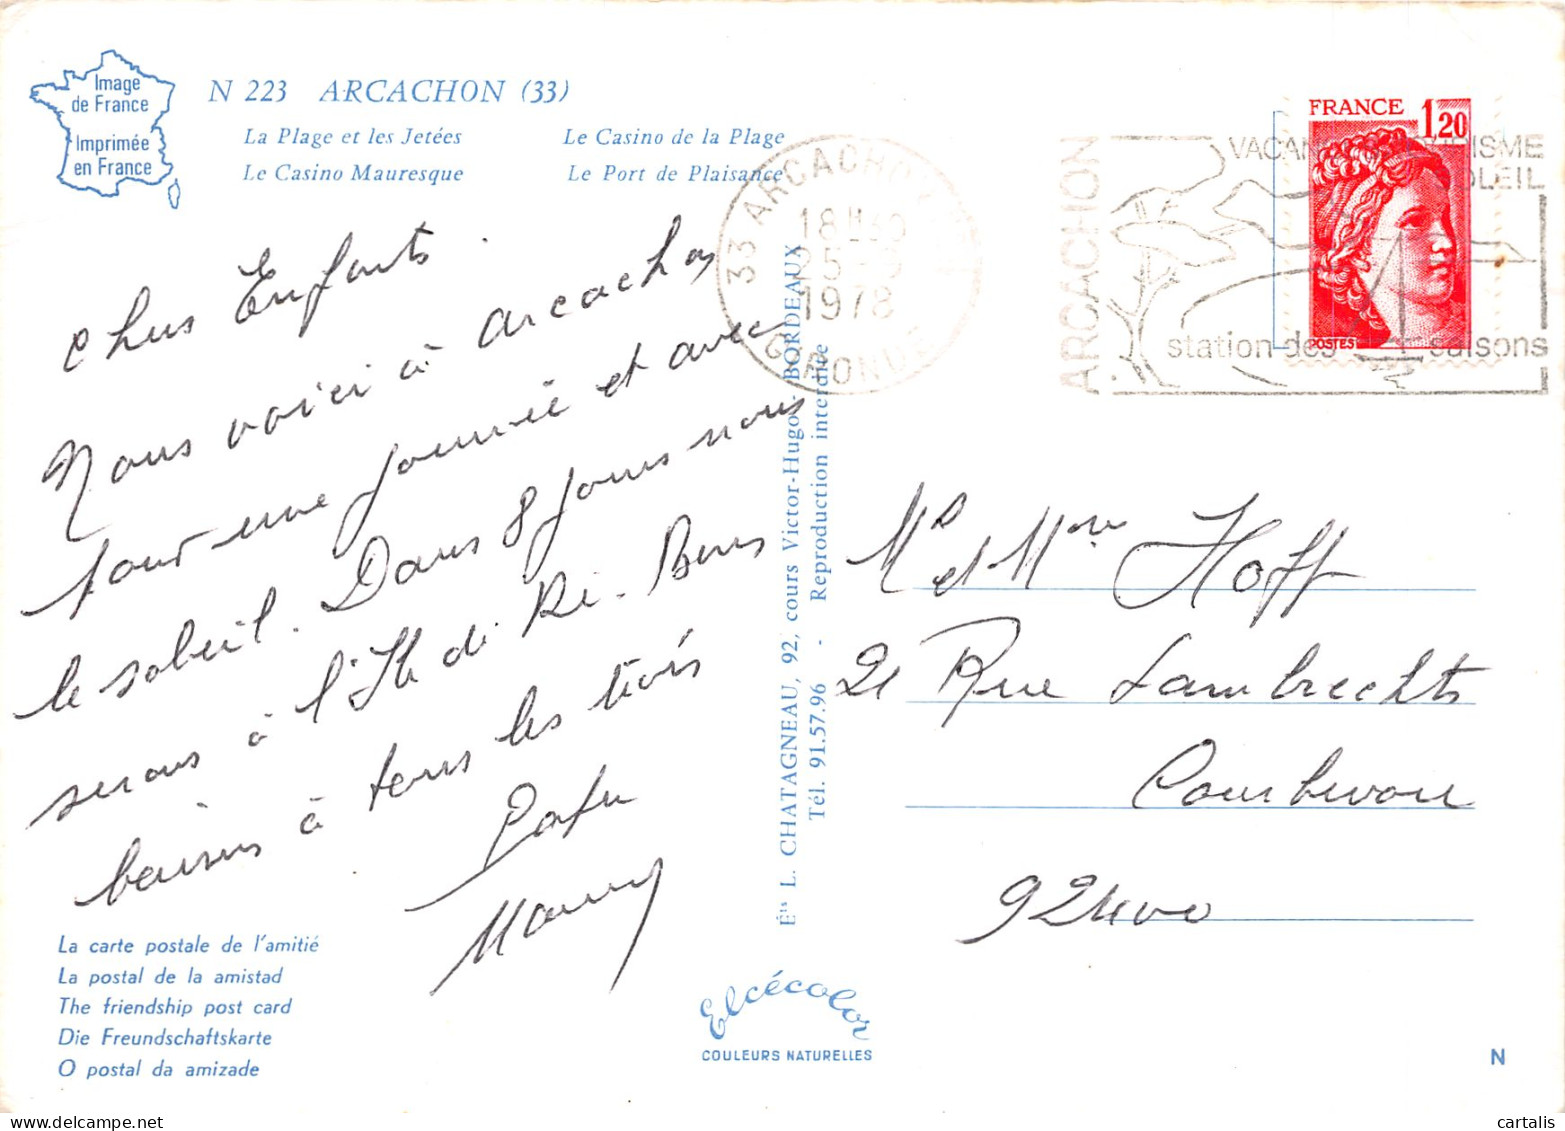 Image
de France
Imprimée
en France
N 223 ARCACHON (33)
La Plage et les Jetées
Le Casino de la Plage
Le Casino Mauresque
Le Port de Plaisance
33 ARCACHON
18H
1978
GIRONDE
ARCACHON
station des saisons
FRANCE 1,20
POSTES
chers Enfants.
Nous voici à arcachon
pour une journée et avec
le soleil. Dans 8 jours nous
serons à l'Ile de Ré. Bons
baisers à tous les trois
Mamy
Mr et Mme Hoff
21 Rue Lambrechts
Courbevoie
92400
Éts L. CHATAGNEAU, 92, cours Victor-Hugo - BORDEAUX
Tél. 91.57.96 - Reproduction interdite
La carte postale de l'amitié
La postal de la amistad
The friendship post card
Die Freundschaftskarte
O postal da amizade
Elcécolor
COULEURS NATURELLES
N
cartalis